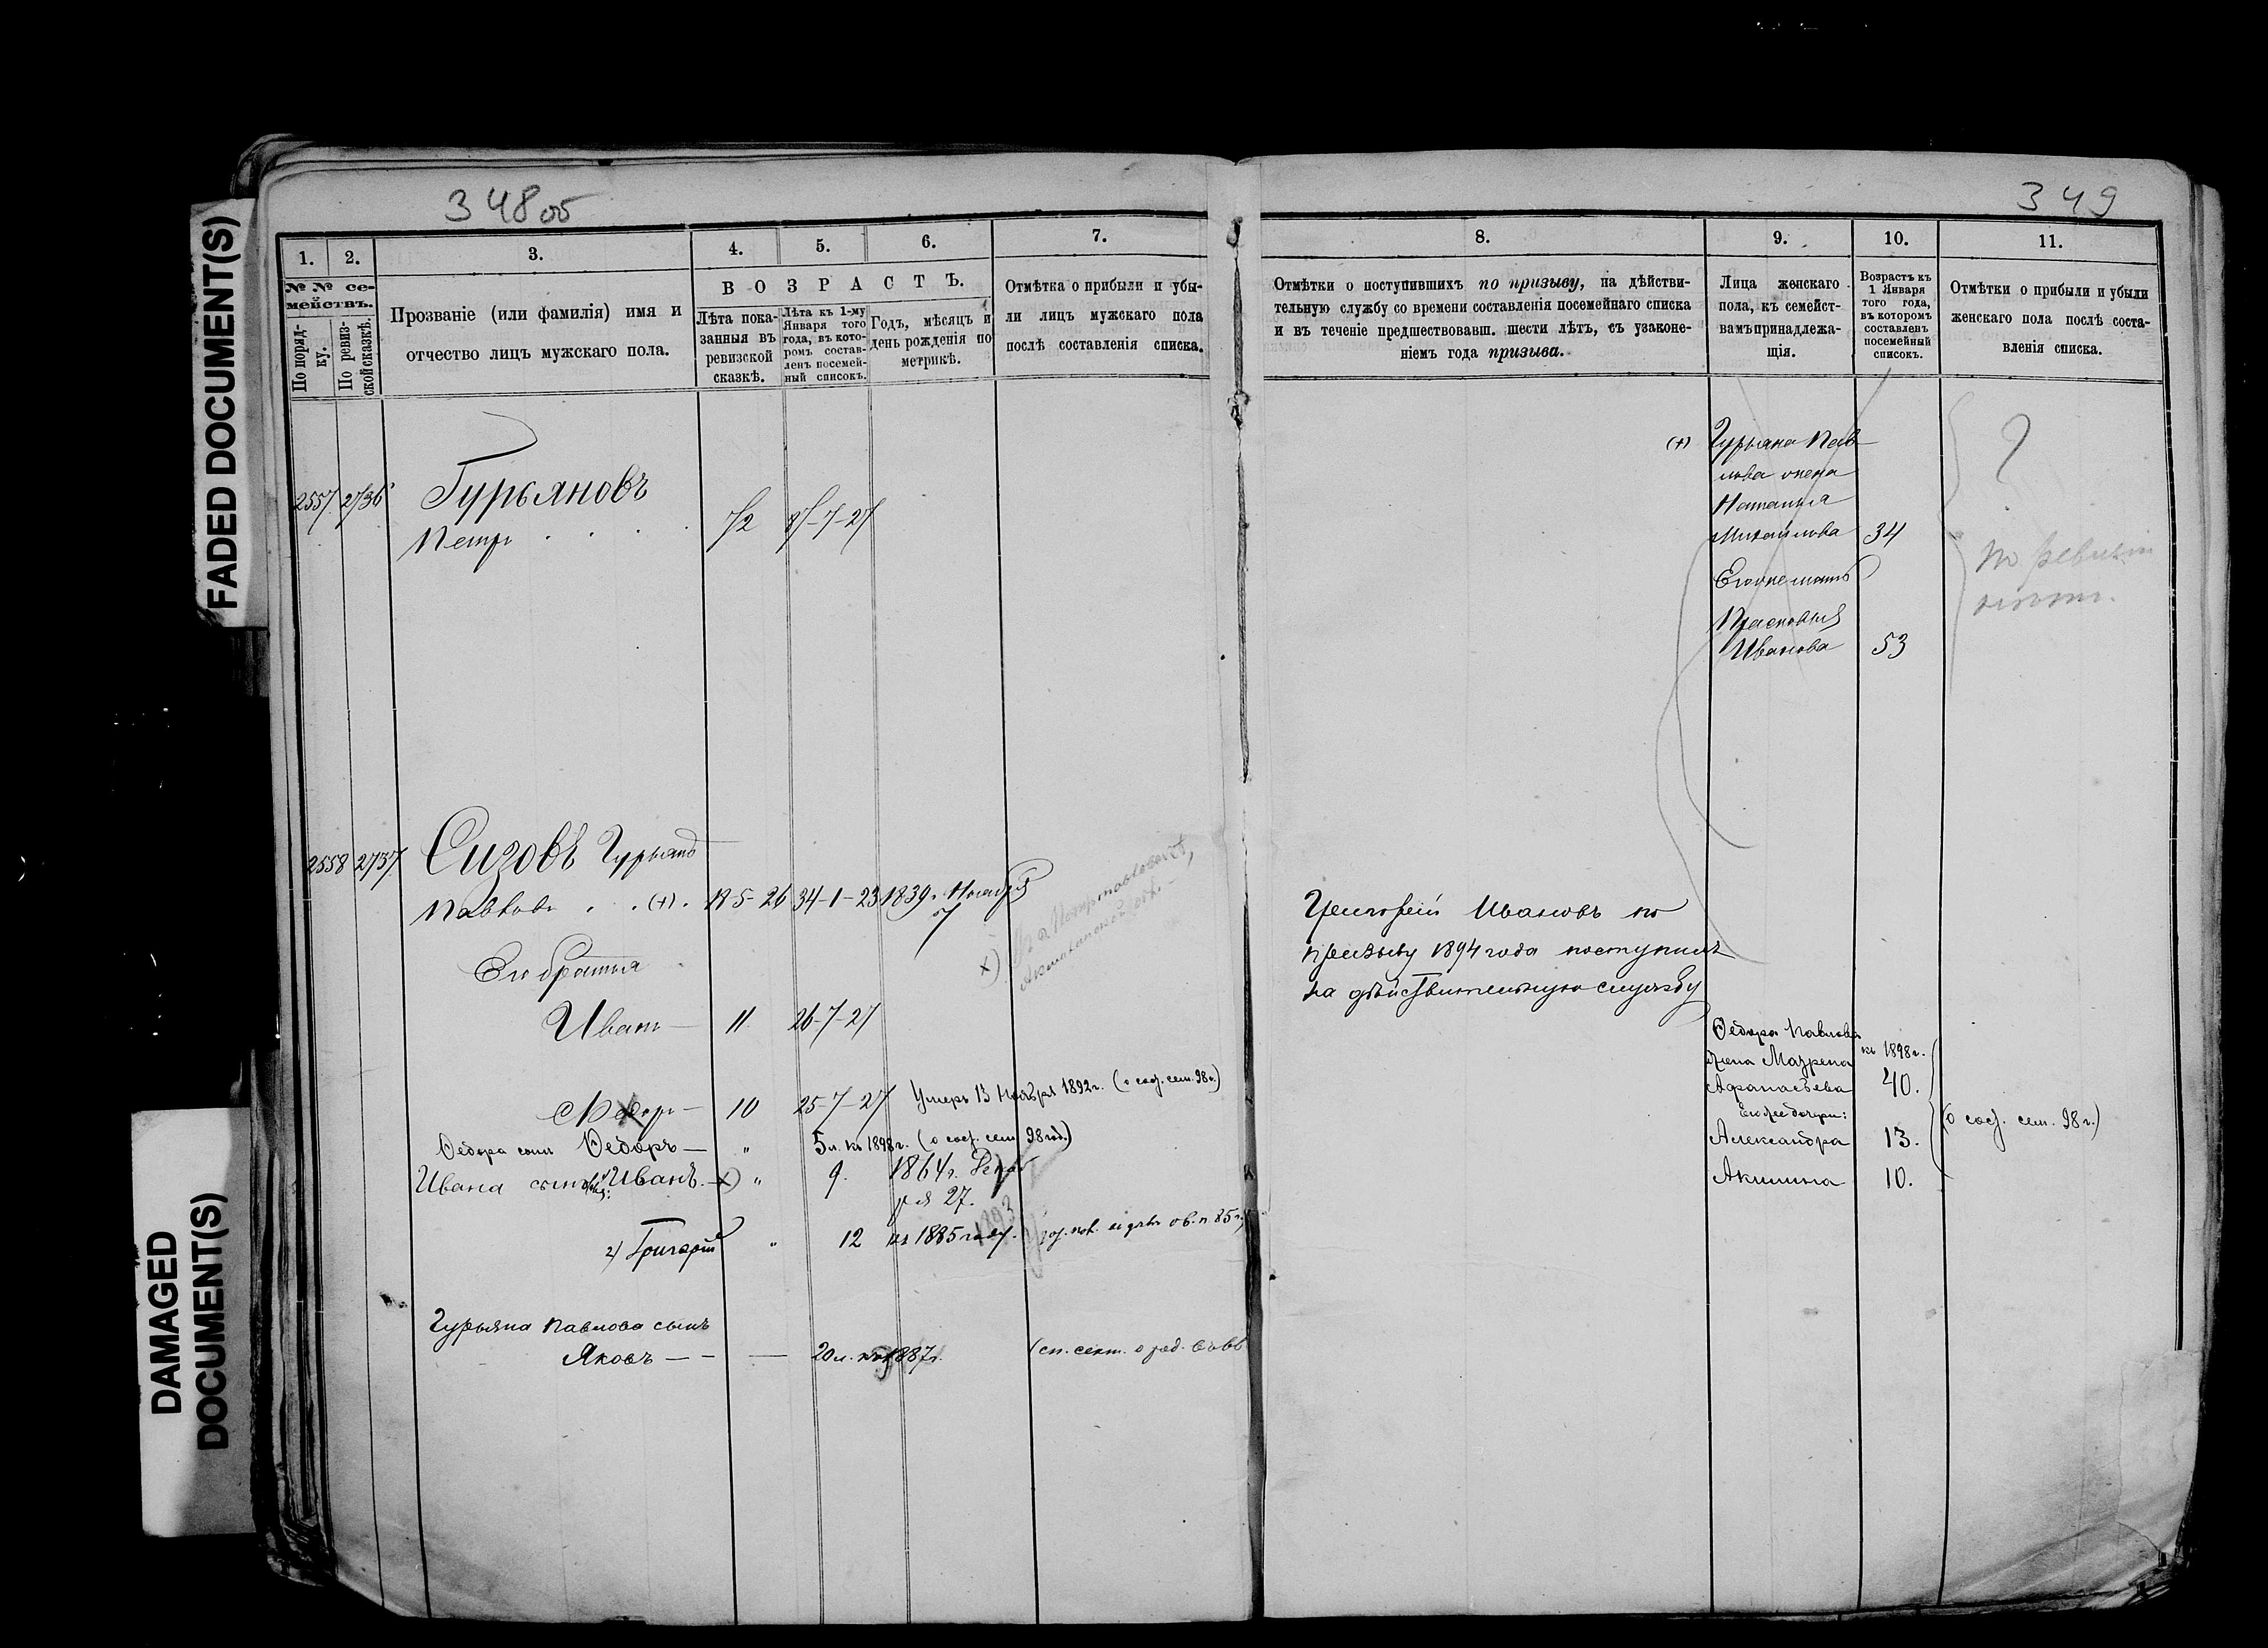 FADED DOCUMENT(S)
DAMAGED
DOCUMENT(S)
348 об
349
1.
2.
3.
4.
5.
6.
7.
8.
9.
10.
11.
№ № се-
мействъ.
По поряд-
ку.
По ревиз-
ской сказкѣ.
Прозваніе (или фамилія) имя и
отчество лицъ мужскаго пола.
ВОЗРАСТЪ.
Лѣта пока-
занныя въ
ревизской
сказкѣ.
Лѣта къ 1-му
Января того
года, въ кото-
ромъ состав-
ленъ посемей-
ный списокъ.
Годъ, мѣсяцъ и
день рожденія по
метрикѣ.
Отмѣтка о прибыли и убы-
ли лицъ мужскаго пола
послѣ составленія списка.
Отмѣтки о поступившихъ по призыву, на дѣйстви-
тельную службу со времени составленія посемейнаго списка
и въ теченіе предшествовавш. шести лѣтъ, съ узаконе-
ніемъ года призыва.
Лица женскаго
пола, къ семейст-
вамъ принадлежа-
щія.
Возрастъ къ
1 Января
того года,
въ которомъ
составленъ
посемейный
списокъ.
Отмѣтки о прибыли и убыли
женскаго пола послѣ соста-
вленія списка.
2557 2736 Гурьяновъ
Петръ 72 87-7-27
(+) Гурьяна Пав-
лова жена
Наталья
Михайлова 34
?
Его же мать
Прасковья
Иванова 53
по ревизіи
2558 2737 Сизовъ Гурьянъ
Павловъ (+) 18-5-26 34-1-23 1839 г. Ноября
7
Его братья
Иванъ 11 26-7-27
Григорій Ивановъ по
призыву 1894 года поступилъ
на дѣйствительную службу
Федоръ 10 25-7-27 Умеръ 13 Ноября 1892 г. (о сост. сем. 98 г.)
Федора сынъ Федоръ " 5 л. къ 1898 г. (о сост. сем. 98 год.)
Ивана сыновья: Иванъ х) " 9. 1864 г. Декаб
ря 27.
2) Григорій " 12 къ 1885 году.
1893
Федора Павлова
жена Мавреna
Афанасьева 40.
къ 1898 г.
Его же дочери:
Александра 13.
Акилина 10.
(о сост. сем. 98 г.)
Гурьяна Павлова сынъ
Яковъ 20 л. къ 1887 г.